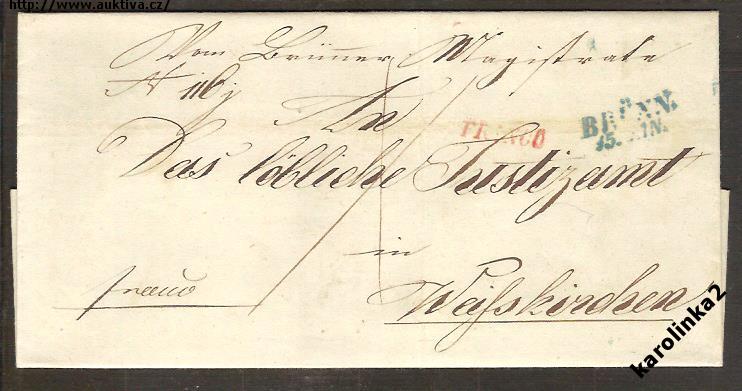 http://www.auktiva.cz/
Vom Brünner Magistrate
An
FRANCO
BRÜNN.
15. JUN.
Das löbliche Justizamt
in
franco
Weißkirchen
karolinka2